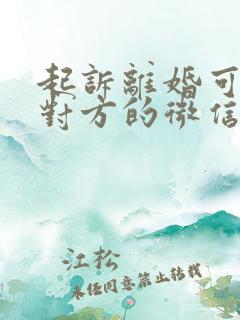 起訴離婚可
對方的微信
江松
未任同意禁止转载